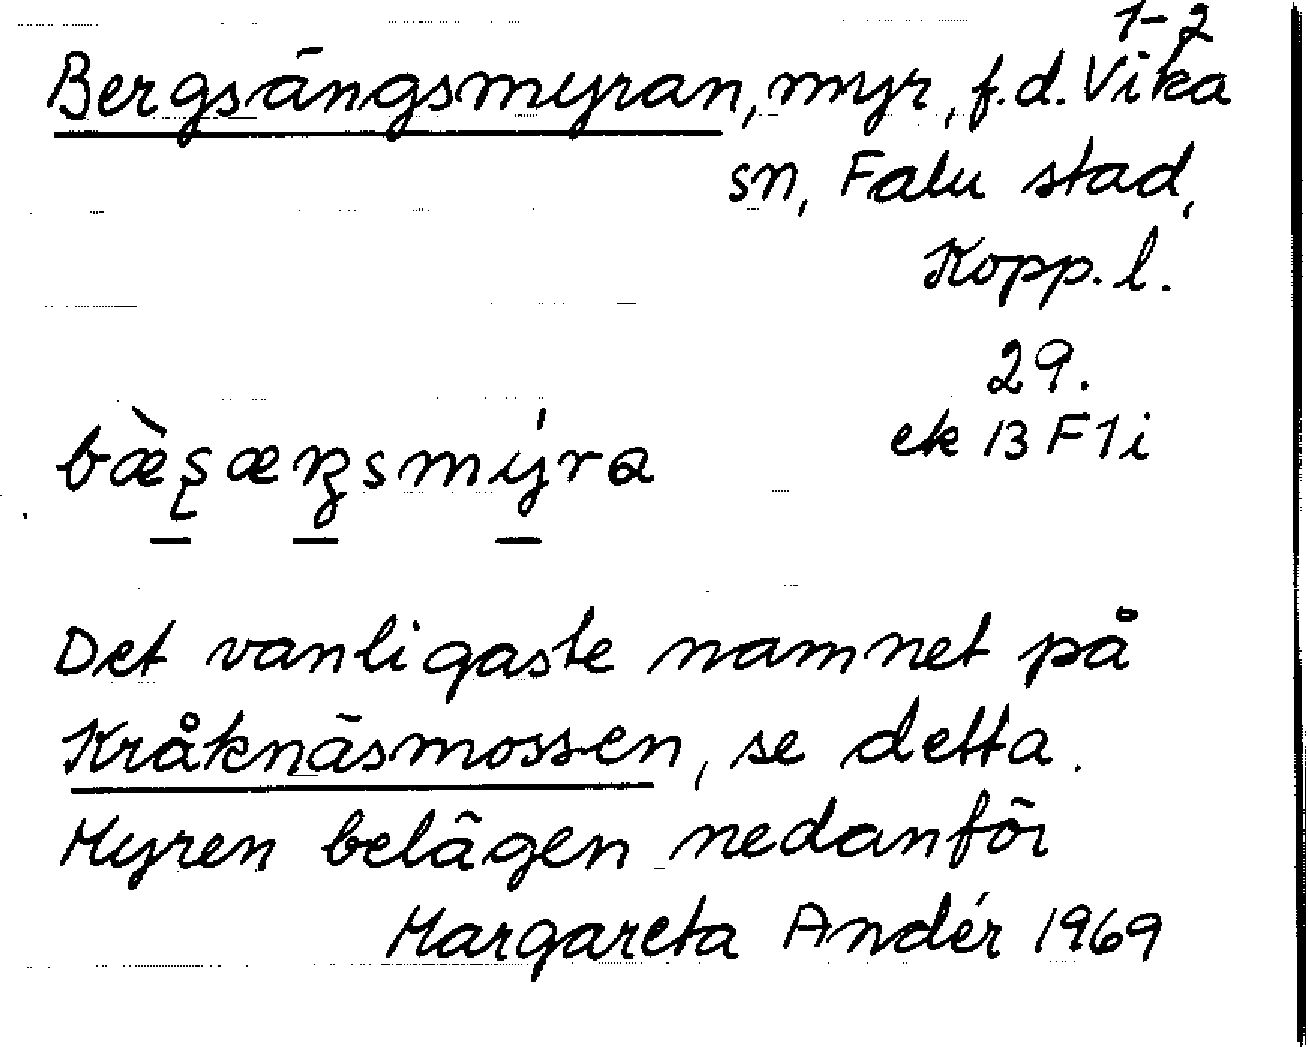 1-2
Bergsängsmyran, myr, f.d. Vika
sn, Falu stad,
Kopp. l.
29.
ek 13 F 1 i
bæ̀ʂæŋsmýra
Det vanligaste namnet på
Kråknäsmossen, se detta.
Myren belägen nedanför
Margareta Andér 1969